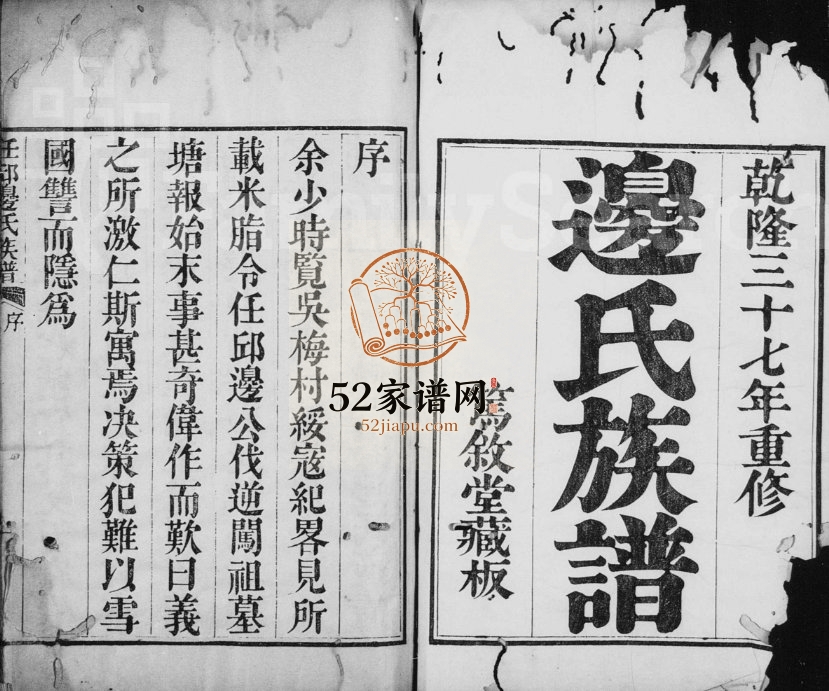 乾隆三十七年重修
邊氏族譜
篤敘堂藏板
序
余少時覧吳梅村綏宼紀畧見所
載米脂令任邱邊公伐逆闖祖墓
塘報始末事甚奇偉作而歎曰義
之所激仁斯寓焉决策犯難以雪
國讐而隱爲
任邱邊氏族譜 序
52家谱网
52jiapu.com